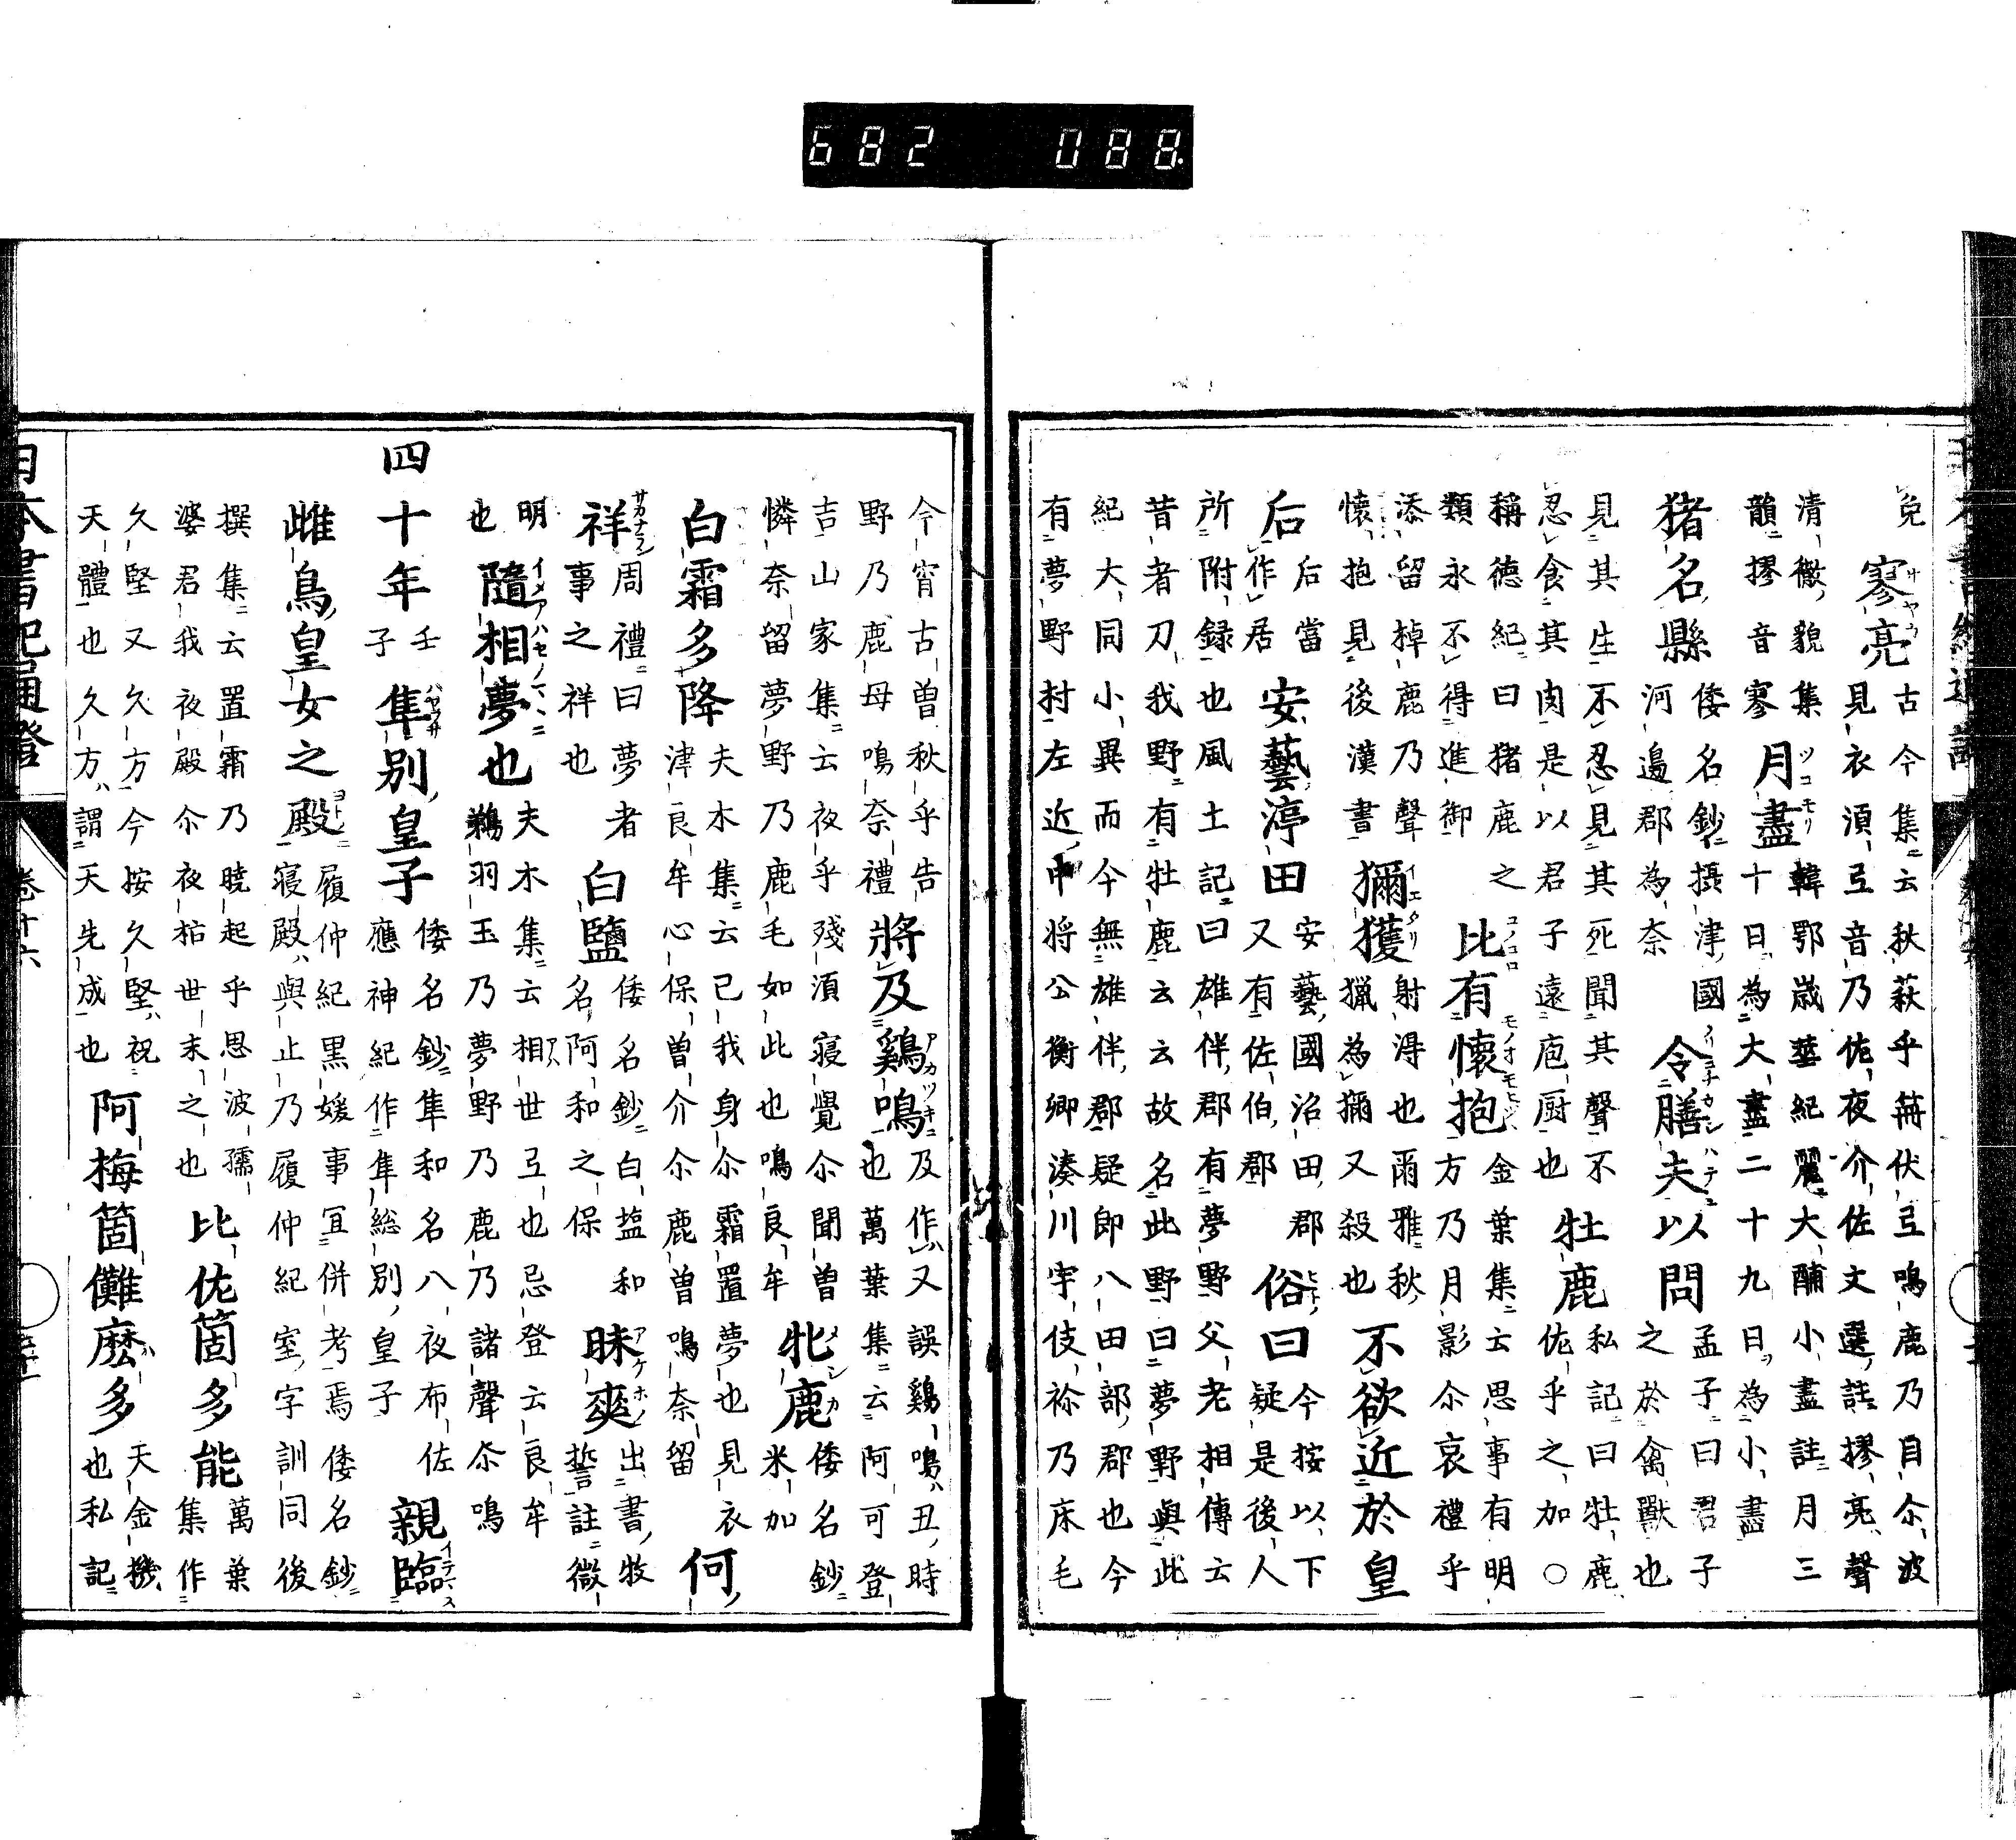 682 088
免
寥亮
古今集云秋萩乎冊伏弖鳴鹿乃目尒波
見衣須弖音乃佐夜介佐文選註摎亮聲
清徹貌集
韻摎音寥
月盡
韓鄂歳華紀麗大酺小盡註月三
十日為大盡二十九日為小盡
猪名縣
倭名鈔攝津國
河邊郡為奈
令膳夫以問
孟子曰君子
之於禽獸也
見其生不忍見其死聞其聲不
忍食其肉是以君子遠庖厨也
牡鹿
私記曰牡鹿
佐乎之加○
稱徳紀曰猪鹿之
類永不得進御
比有懷抱
金葉集云思事有明
方乃月影尒哀禮乎
添留棹鹿乃聲
懷抱見後漢書
獮獲
射得也爾雅秋
猟為獮又殺也
不欲近於皇
后
后當
作居
安藝渟田
安藝國沼田郡
又有佐伯郡
俗曰
今按以下
疑是後人
所附録也風土記曰雄伴郡有夢野父老相傳云
昔者刀我野有牡鹿云云故名此野曰夢野與此
紀大同小異而今無雄伴郡疑即八田部郡也今
有夢野村左近中将公衡卿湊川宇伎祢乃床毛
今宵古曽秋乎告
野乃鹿母鳴奈禮
將及鷄鳴
及作又誤鷄鳴丑時
也萬葉集云阿可登
吉山家集云夜乎殘須寝覺尒聞曽
憐奈留夢野乃鹿毛如此也鳴良牟
牝鹿
倭名鈔
米加
白霜多降
夫木集云己我身尒霜置夢也見衣
津良牟心保曽介尒鹿曽鳴奈留
何
祥
周禮曰夢者
事之祥也
白鹽
倭名鈔白塩和
名阿和之保
昧爽
出書牧
誓註微
明
也
隨相夢也
夫木集云相世弖也忌登云良牟
鵜羽玉乃夢野乃鹿乃諸聲尒鳴
四十年
壬
子
隼別皇子
倭名鈔隼和名八夜布佐
應神紀作隼総別皇子
親臨
雌鳥皇女之殿
履仲紀黒媛事冝併考焉倭名鈔
寝殿與止乃履仲紀室字訓同後
撰集云置霜乃暁起乎思波孺
婆君我夜殿尒夜枯世末之也
比佐箇多能
萬葉
集作
久堅又久方今按久堅祝
天體也久方謂天先成也
阿梅箇儺麼多
天金機
也私記
日本書紀通證
卷十六